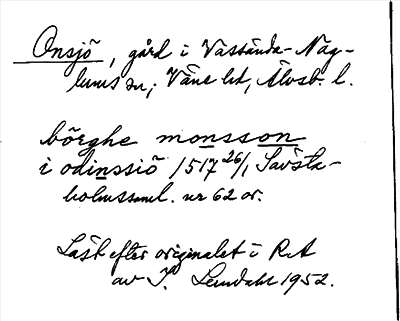 Onsjö, gård i Vassända-Nag-
lums sn, Väne hd, Älvsb. l.
börghe monsson
i odinssiö 1517 26/1, Sävsta-
holmssaml. nr 62 or.
Läst efter originalet i RA
av I. Lundahl 1952.